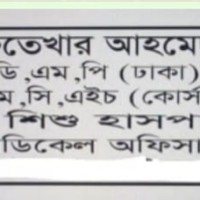 তেখার আহমে
ডি,এম,পি (ঢাকা)
ম,সি,এইচ (কোর্স
শিশু হাসপ
ডিকেল অফিসা